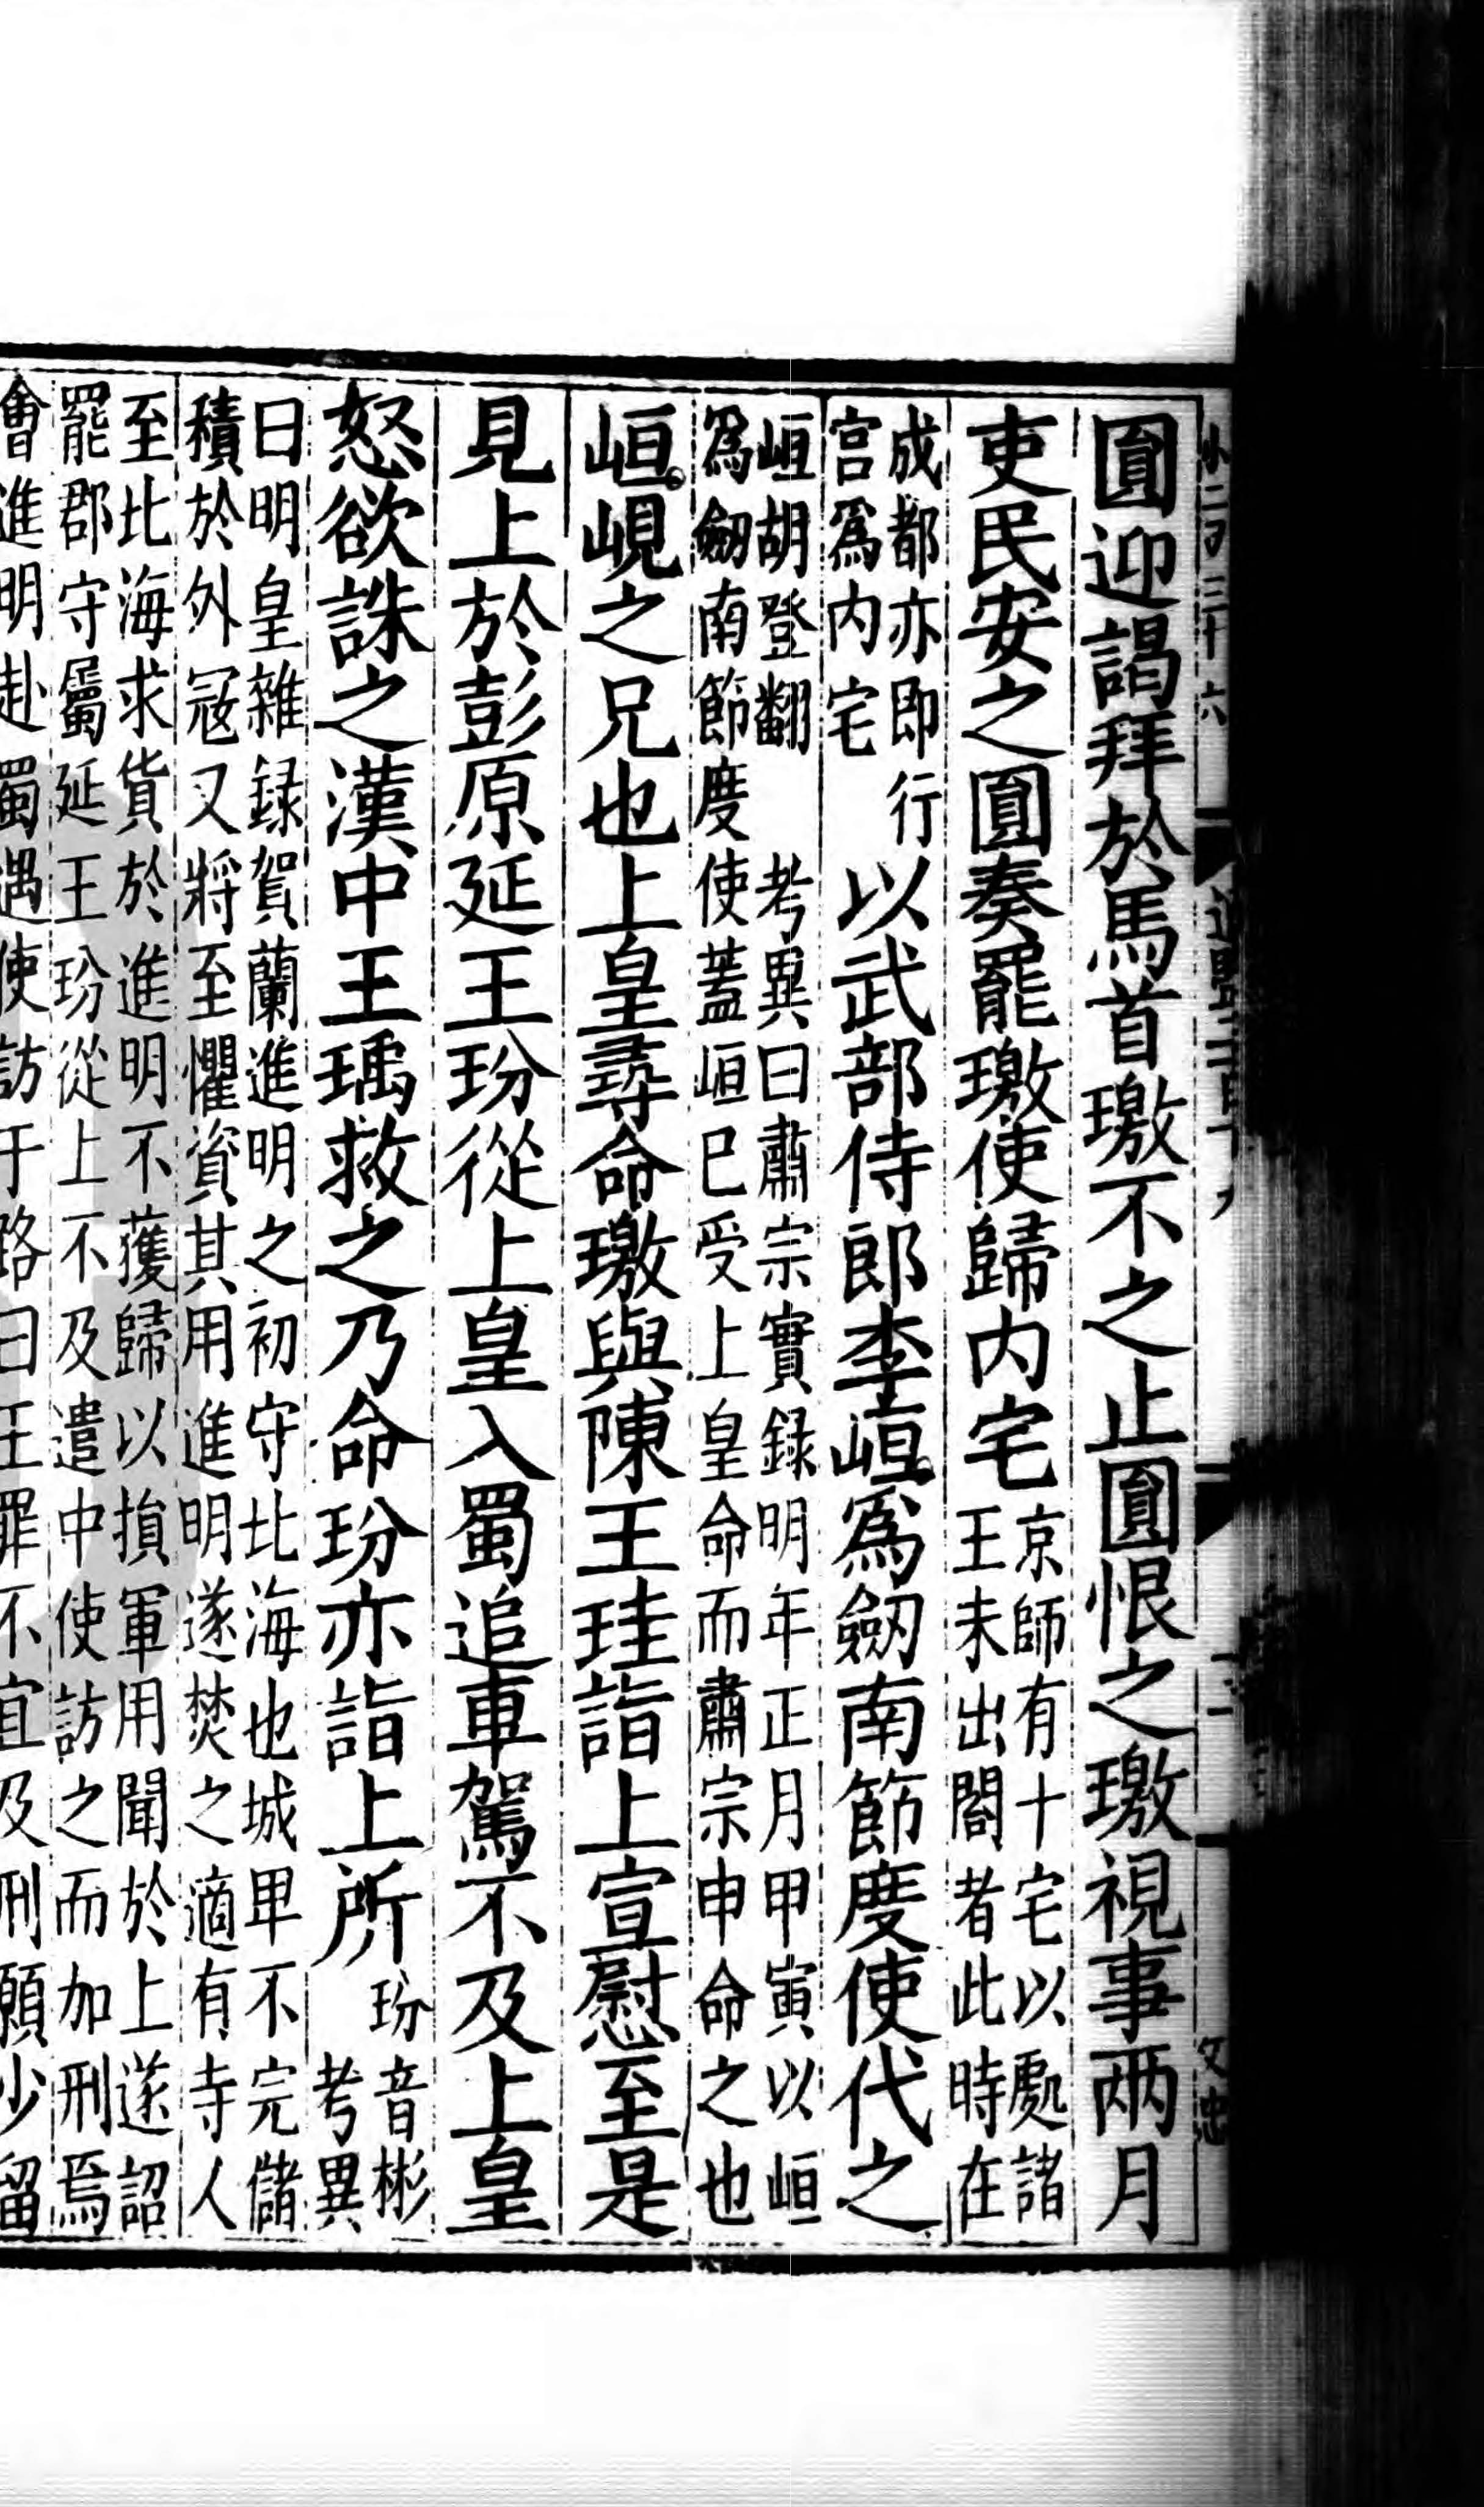 圓迎謁拜於馬首璬不之止圓恨之璬視事兩月
吏民安之圓奏罷璬使歸内宅京師有十宅以處諸
王未出閤者此時在
成都亦即行
宫爲内宅以武部侍郎李峘爲劒南節度使代之
峘胡登翻考異曰肅宗實録明年正月甲寅以峘
爲劒南節度使蓋峘巳受上皇命而肅宗申命之也
峘峴之兄也上皇尋命璬與陳王珪詣上宣慰至是
見上於彭原延王玢從上皇入蜀追車駕不及上皇
怒欲誅之漢中王瑀救之乃命玢亦詣上所玢音彬
考異
曰明皇雜録賀蘭進明之初守北海也城卑不完儲
積於外冦又將至懼資其用進明遂焚之適有寺人
至北海求貨於進明不獲歸以損軍用聞於上遂詔
罷郡守屬延王玢從上不及遣中使訪之而加刑焉
會進明赴蜀遇使訪于路曰王罪不宜及刑願少留